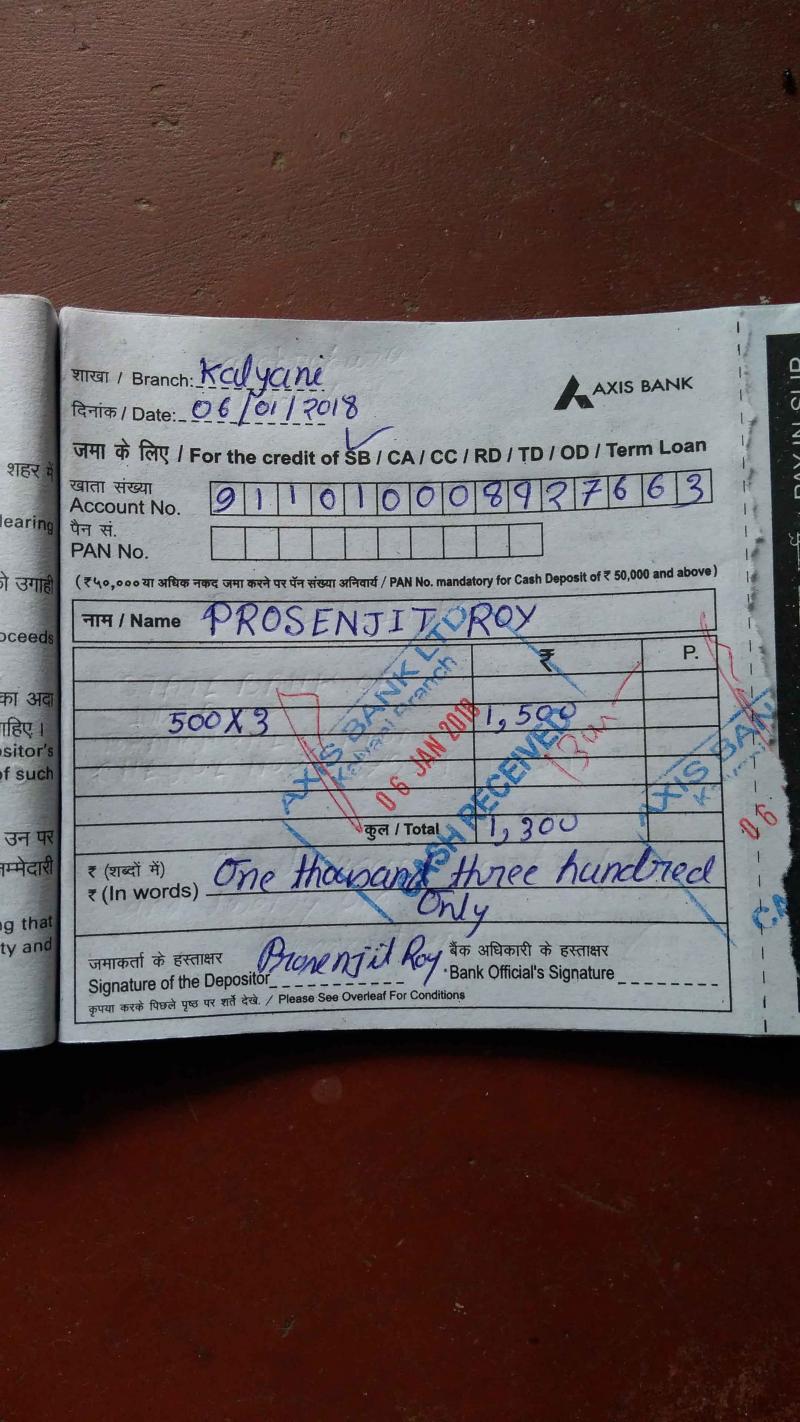 शाखा / Branch: Kalyani
AXIS BANK
दिनांक / Date: 06/01/2018
जमा के लिए / For the credit of SB / CA / CC / RD / TD / OD / Term Loan
खाता संख्या
Account No. 911010008927663
पैन सं.
PAN No.
(₹५०,००० या अधिक नकद जमा करने पर पॅन संख्या अनिवार्य / PAN No. mandatory for Cash Deposit of ₹ 50,000 and above)
नाम / Name PROSENJIT ROY
₹ P.
500X3 1,500
AXIS BANK LTD
Kalyani Branch
06 JAN 2018
CASH RECEIVED
कुल / Total 1,300
₹ (शब्दों में)
₹ (In words) One thousand three hundred
Only
जमाकर्ता के हस्ताक्षर बैंक अधिकारी के हस्ताक्षर
Signature of the Depositor Prosenjit Roy Bank Official's Signature
कृपया करके पिछले पृष्ठ पर शर्ते देखे. / Please See Overleaf For Conditions
शहर में
learing
को उगाही
oceeds
का अदा
ाहिए ।
ositor's
of such
उन पर
म्मेदारी
ng that
ty and
AXIS BAN
06
CA
PAY IN SLIP